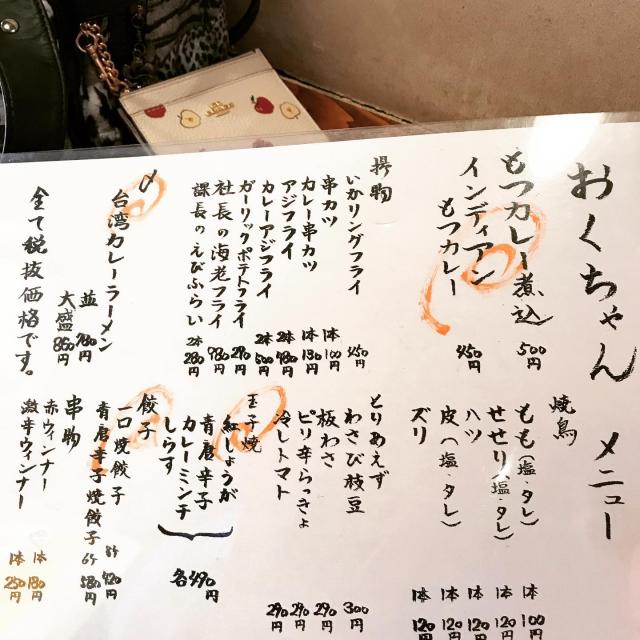 おくちゃん メニュー
もつカレー煮込 500円
インディアンもつカレー 450円
揚物
いかリングフライ 450円
串カツ 1本 100円
カレー串カツ 1本 130円
アジフライ 2本 480円
カレーアジフライ 2本 500円
ガーリックポテトフライ 290円
社長の海老フライ 980円
課長のえびふらい 2本 280円
〆
台湾カレーラーメン
並 780円
大盛 880円
全て税抜価格です。
焼鳥
もも(塩・タレ) 1本 100円
せせり(塩・タレ) 1本 120円
ハツ 1本 120円
皮(塩・タレ) 1本 120円
ズリ 1本 120円
とりあえず
わさび枝豆 300円
板わさ 290円
ピリ辛らっきょ 290円
冷しトマト 290円
玉子焼
紅しょうが
青唐辛子
カレーミンチ
しらす
各490円
餃子
一口焼餃子 8ケ 420円
青唐辛子焼餃子 6ケ 580円
串物
赤ウィンナー 1本 180円
激辛ウィンナー 1本 250円